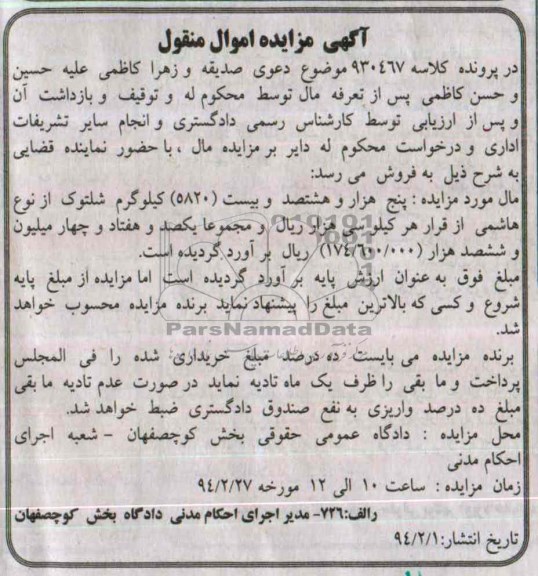 آگهی مزایده اموال منقول
در پرونده کلاسه ۹۳۰۴۶۷ موضوع دعوی صدیقه و زهرا کاظمی علیه حسین
و حسن کاظمی پس از تعرفه مال توسط محکوم له و توقیف و بازداشت آن
و پس از ارزیابی توسط کارشناس رسمی دادگستری و انجام سایر تشریفات
اداری و درخواست محکوم له دایر بر مزایده مال ، با حضور نماینده قضایی
به شرح ذیل به فروش می رسد:
مال مورد مزایده : پنج هزار و هشتصد و بیست (۵۸۲۰) کیلوگرم شلتوک از نوع
هاشمی از قرار هر کیلو سی هزار ریال و مجموعا یکصد و هفتاد و چهار میلیون
و ششصد هزار (۱۷۴/۶۰۰/۰۰۰) ریال بر آورد گردیده است.
مبلغ فوق به عنوان ارزش پایه بر آورد گردیده است اما مزایده از مبلغ پایه
شروع و کسی که بالاترین مبلغ را پیشنهاد نماید برنده مزایده محسوب خواهد
شد.
ParsNamadData
برنده مزایده می بایست ده درصد مبلغ خریداری شده را فی المجلس
پرداخت و ما بقی را ظرف یک ماه تادیه نماید در صورت عدم تادیه ما بقی
مبلغ ده درصد واریزی به نفع صندوق دادگستری ضبط خواهد شد.
محل مزایده : دادگاه عمومی حقوقی بخش کوچصفهان - شعبه اجرای
احکام مدنی
زمان مزایده : ساعت ۱۰ الی ۱۲ مورخه ۹۴/۲/۲۷
رالف:۷۲۶- مدیر اجرای احکام مدنی دادگاه بخش کوچصفهان
تاریخ انتشار:۹۴/۲/۱